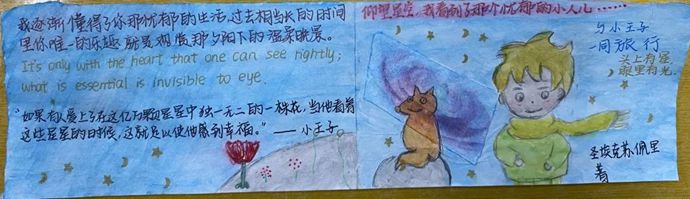 我逐渐懂得了你那忧郁的生活,过去相当长的时间
里你唯一的乐趣就是观赏那夕阳下的温柔晚景。
It's only with the heart that one can see rightly;
what is essential is invisible to eye.
"如果有人爱上了在这亿万颗星星中独一无二的一株花,当他看着
这些星星的时候,这就足以使他感到幸福。"——小王子
仰望星空,我看到了那个忧郁的小人儿……
与小王子
一同旅行
头上有星
眼里有光
圣埃克苏佩里
著